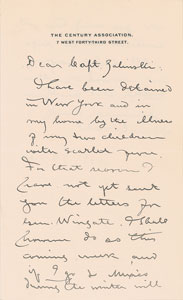 THE CENTURY ASSOCIATION,
7 WEST FORTY-THIRD STREET.
Dear Capt Zalinski:
I have been detained
in New York and in
my home by the illness
of my two children
with scarlet fever.
For that reason I
have not yet sent
you the letters for
Gen. Wingate. I shall
however do so this
coming week and
if I go to Mexico
during the winter will